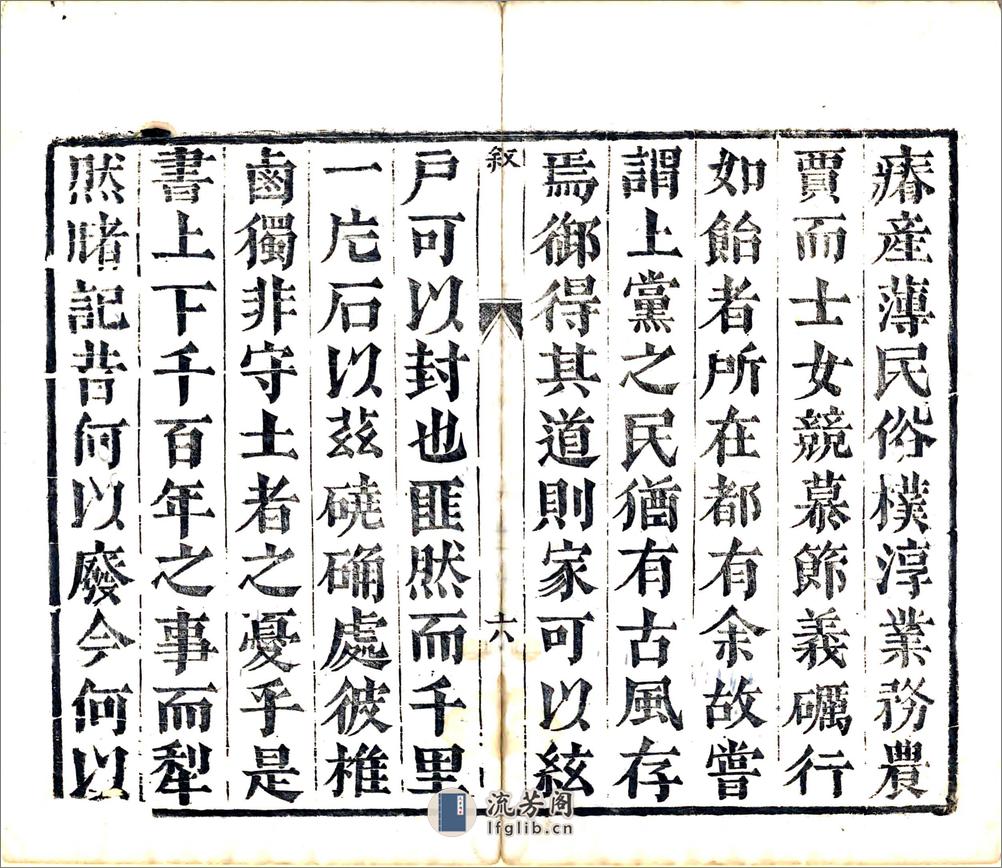 瘠産薄民俗樸淳業務農
賈而士女競慕節義礪行
如飴者所在都有余故嘗
謂上黨之民猶有古風存
焉御得其道則家可以絃
叙
六
戸可以封也匪然而千里
一片石以茲磽确處彼椎
鹵獨非守土者之憂乎是
書上下千百年之事而犁
然睹記昔何以廢今何以
流芳阁
lfglib.cn